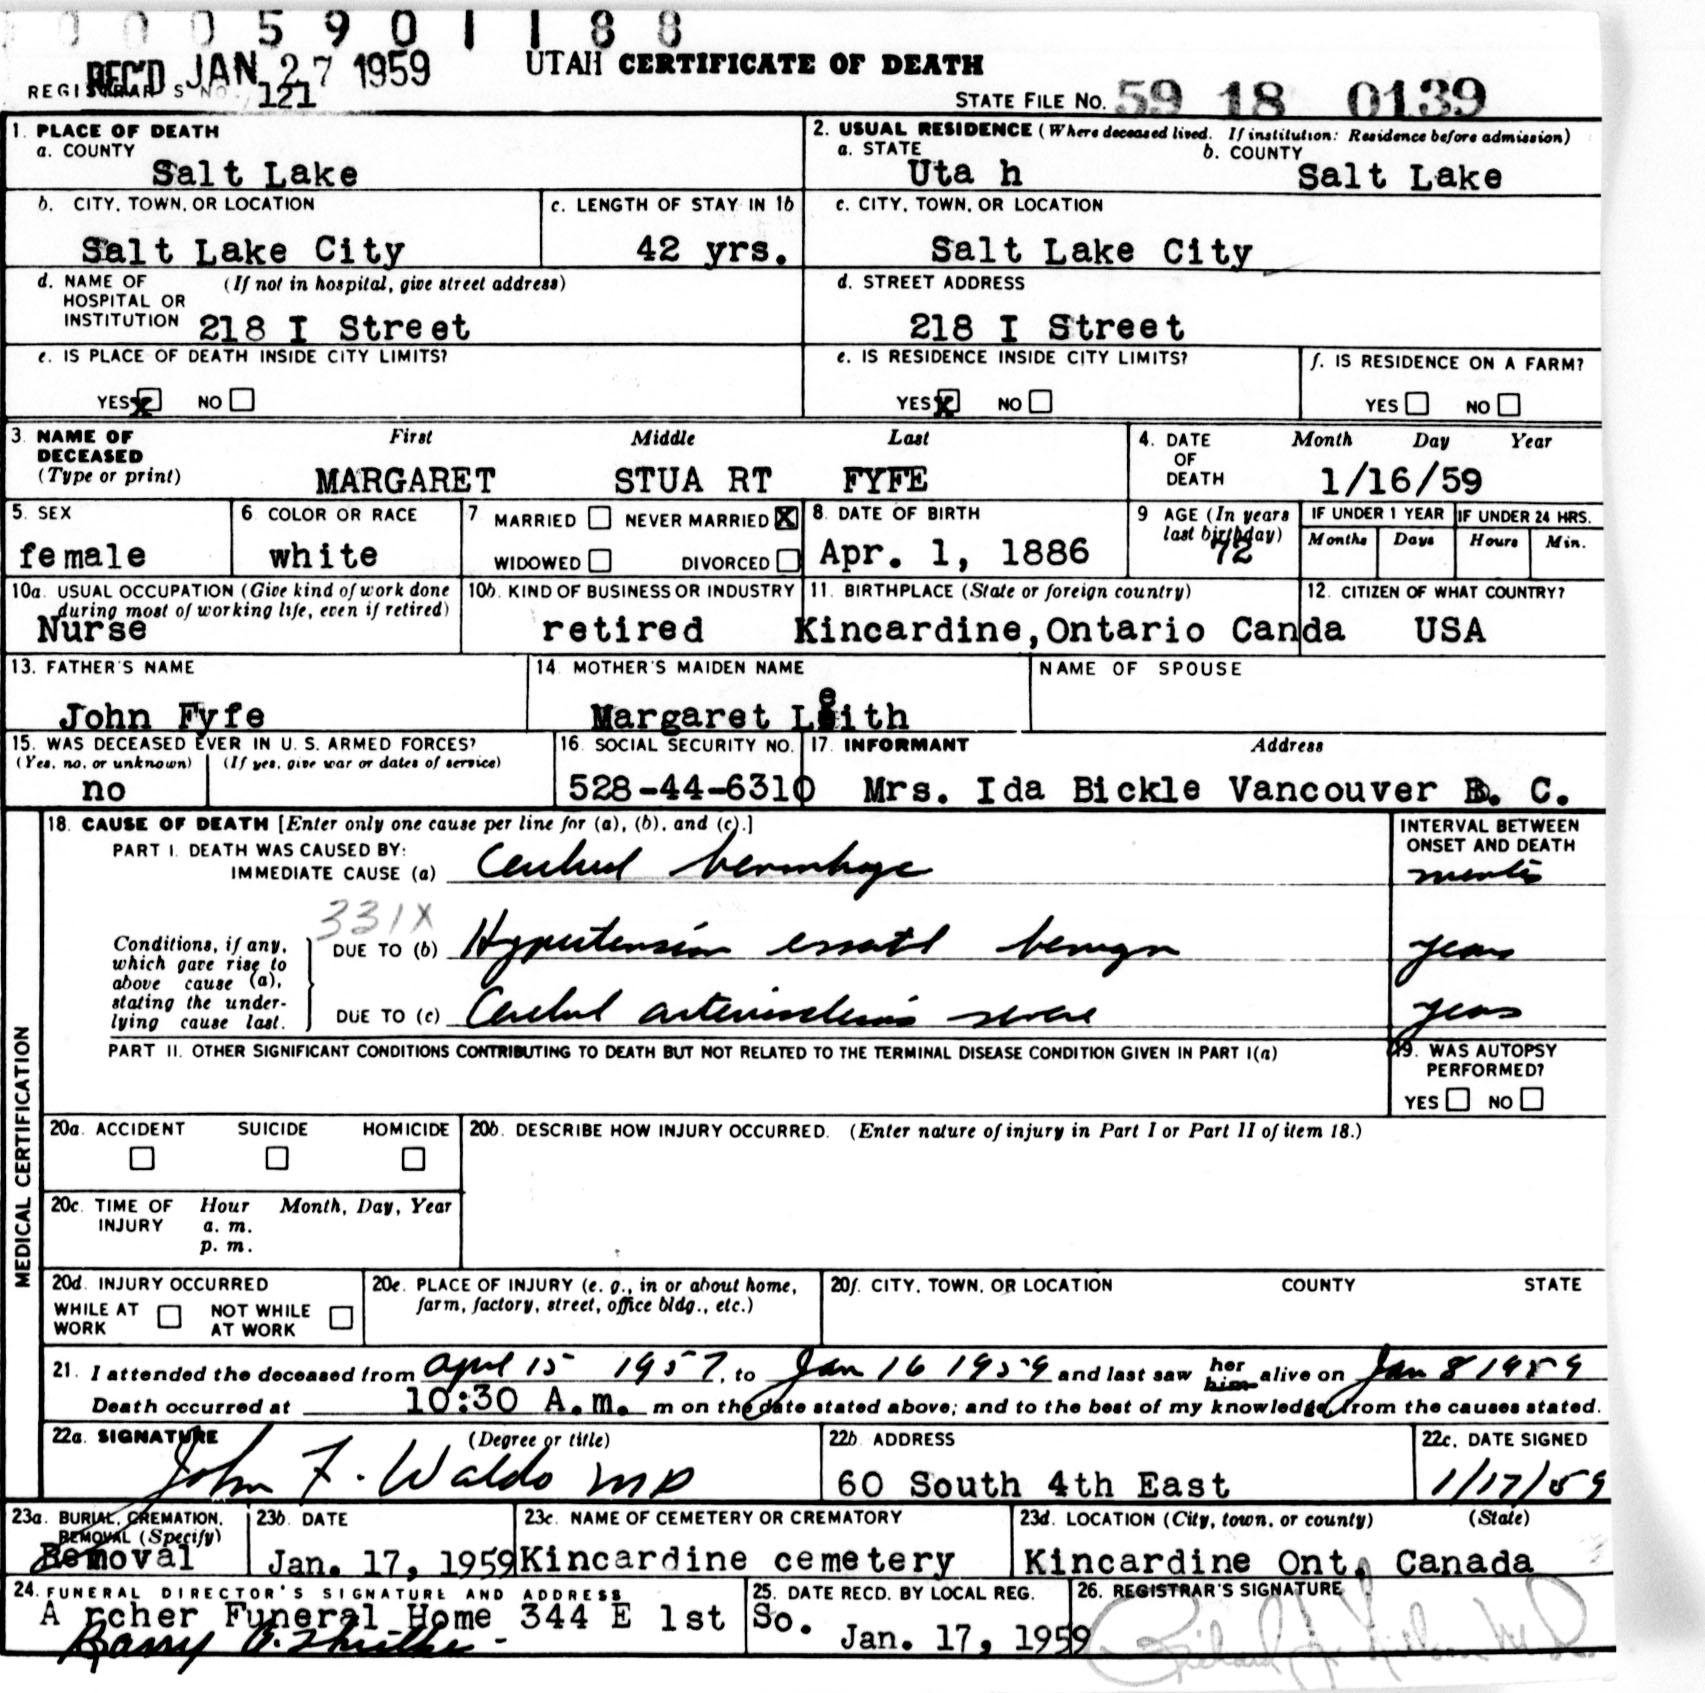 0 0 0 5 9 0 1 1 8 8
REC'D JAN 27 1959
UTAH CERTIFICATE OF DEATH
REGISTRAR'S NO. 121
STATE FILE NO. 59 18 0139
1. PLACE OF DEATH
a. COUNTY
Salt Lake
2. USUAL RESIDENCE (Where deceased lived. If institution: Residence before admission)
a. STATE b. COUNTY
Uta h Salt Lake
b. CITY, TOWN, OR LOCATION
Salt Lake City
c. LENGTH OF STAY IN 1b
42 yrs.
c. CITY, TOWN, OR LOCATION
Salt Lake City
d. NAME OF (If not in hospital, give street address)
HOSPITAL OR
INSTITUTION 218 I Street
d. STREET ADDRESS
218 I Street
e. IS PLACE OF DEATH INSIDE CITY LIMITS?
YES X NO
e. IS RESIDENCE INSIDE CITY LIMITS?
YES X NO
f. IS RESIDENCE ON A FARM?
YES NO
3. NAME OF First Middle Last
DECEASED
(Type or print) MARGARET STUA RT FYFE
4. DATE Month Day Year
OF
DEATH 1/16/59
5. SEX
female
6. COLOR OR RACE
white
7 MARRIED NEVER MARRIED X
WIDOWED DIVORCED
8. DATE OF BIRTH
Apr. 1, 1886
9 AGE (In years
last birthday)
72
IF UNDER 1 YEAR IF UNDER 24 HRS.
Months Days Hours Min.
10a. USUAL OCCUPATION (Give kind of work done
during most of working life, even if retired)
Nurse
10b. KIND OF BUSINESS OR INDUSTRY
retired
11. BIRTHPLACE (State or foreign country)
Kincardine,Ontario Canda
12. CITIZEN OF WHAT COUNTRY?
USA
13. FATHER'S NAME
John Fyfe
14. MOTHER'S MAIDEN NAME
Margaret Leith
NAME OF SPOUSE
15. WAS DECEASED EVER IN U. S. ARMED FORCES?
(Yes, no, or unknown) (If yes, give war or dates of service)
no
16. SOCIAL SECURITY NO.
528-44-6310
17. INFORMANT Address
Mrs. Ida Bickle Vancouver B. C.
MEDICAL CERTIFICATION
18. CAUSE OF DEATH [Enter only one cause per line for (a), (b), and (c).]
PART I. DEATH WAS CAUSED BY:
IMMEDIATE CAUSE (a) Cerebral hemorrhage
INTERVAL BETWEEN
ONSET AND DEATH
331X
Conditions, if any,
which gave rise to
above cause (a),
stating the under-
lying cause last.
DUE TO (b) Hypertension essentl benign
years
DUE TO (c) Cerebral arteriosclerosis severe
years
PART II. OTHER SIGNIFICANT CONDITIONS CONTRIBUTING TO DEATH BUT NOT RELATED TO THE TERMINAL DISEASE CONDITION GIVEN IN PART I(a)
19. WAS AUTOPSY
PERFORMED?
YES NO
20a. ACCIDENT SUICIDE HOMICIDE
20b. DESCRIBE HOW INJURY OCCURRED. (Enter nature of injury in Part I or Part II of item 18.)
20c. TIME OF Hour Month, Day, Year
INJURY a. m.
p. m.
20d. INJURY OCCURRED
WHILE AT NOT WHILE
WORK AT WORK
20e. PLACE OF INJURY (e. g., in or about home,
farm, factory, street, office bldg., etc.)
20f. CITY, TOWN, OR LOCATION COUNTY STATE
21. I attended the deceased from April 15 1957, to Jan 16 1959 and last saw her him alive on Jan 8 1959
Death occurred at 10:30 A.m. m on the date stated above; and to the best of my knowledge, from the causes stated.
22a. SIGNATURE (Degree or title)
John F. Waldo MD
22b. ADDRESS
60 South 4th East
22c. DATE SIGNED
1/17/59
23a. BURIAL, CREMATION,
REMOVAL (Specify)
Removal
23b. DATE
Jan. 17, 1959
23c. NAME OF CEMETERY OR CREMATORY
Kincardine cemetery
23d. LOCATION (City, town, or county) (State)
Kincardine Ont. Canada
24. FUNERAL DIRECTOR'S SIGNATURE AND ADDRESS
A rcher Funeral Home 344 E 1st So.
25. DATE RECD. BY LOCAL REG.
Jan. 17, 1959
26. REGISTRAR'S SIGNATURE